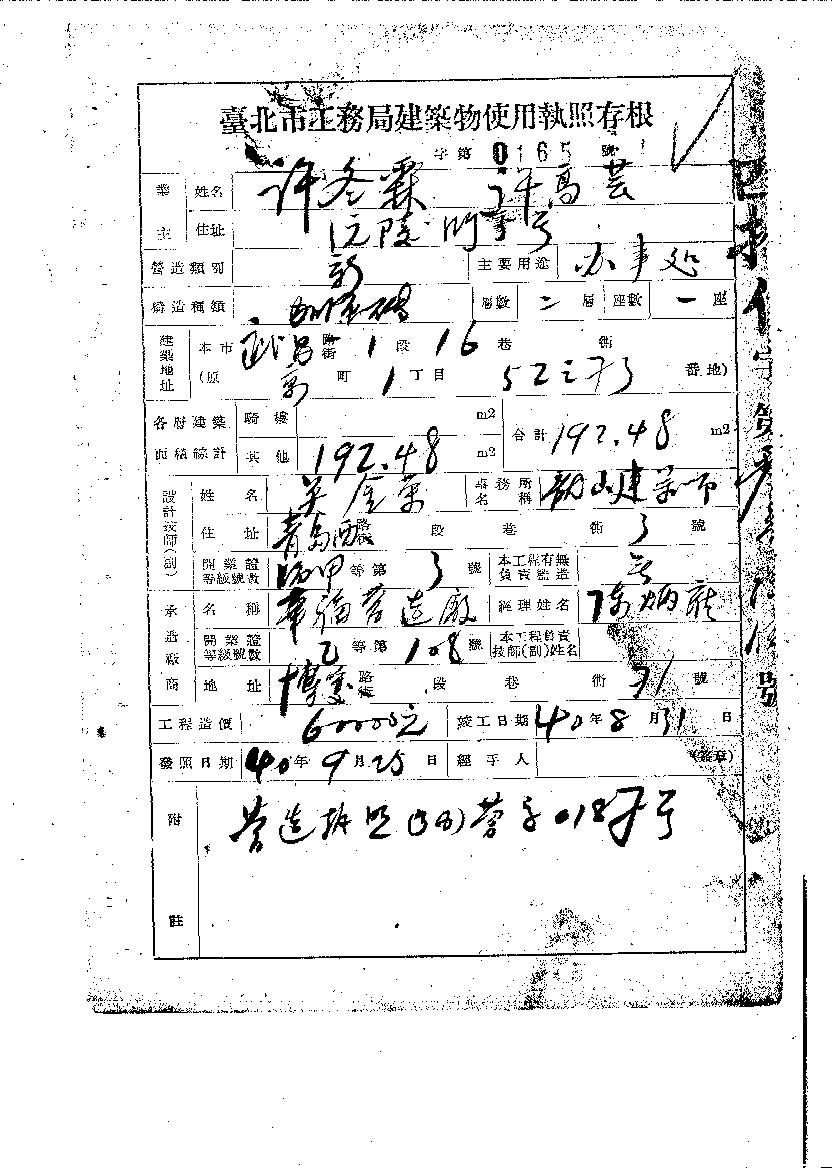 臺北市工務局建築物使用執照存根
字第0165號
業主 姓名 许冬霖 许高芸
住址 沅陵街 号
營造類別 新 主要用途 办事处
構造種類 層數 二 層 座數 一 座
建築地址 本市 武昌 路街 1 段 16 巷 衖
(原 町 1 丁目 52之 番地)
各層建築面積綜計 騎樓 m2 合計 192.48 m2
其他 192.48 m2
設計技師(副) 姓名 事務所名稱 建筑师
住址 青島西 路街 段 巷 衖 3 號
開業證等級號數 甲 等第 3 號 本工程有無負責監造
承造廠商 名稱 華福营造廠 經理姓名 陈炳
開業證等級號數 乙 等第 108 號 本工程負責技師(副)姓名
地址 博愛 路街 段 巷 衖 71 號
工程造價 60000元 竣工日期 40年8月31日
發照日期 40年9月25日 經手人 (簽章)
附註 营造执照 营字018 号